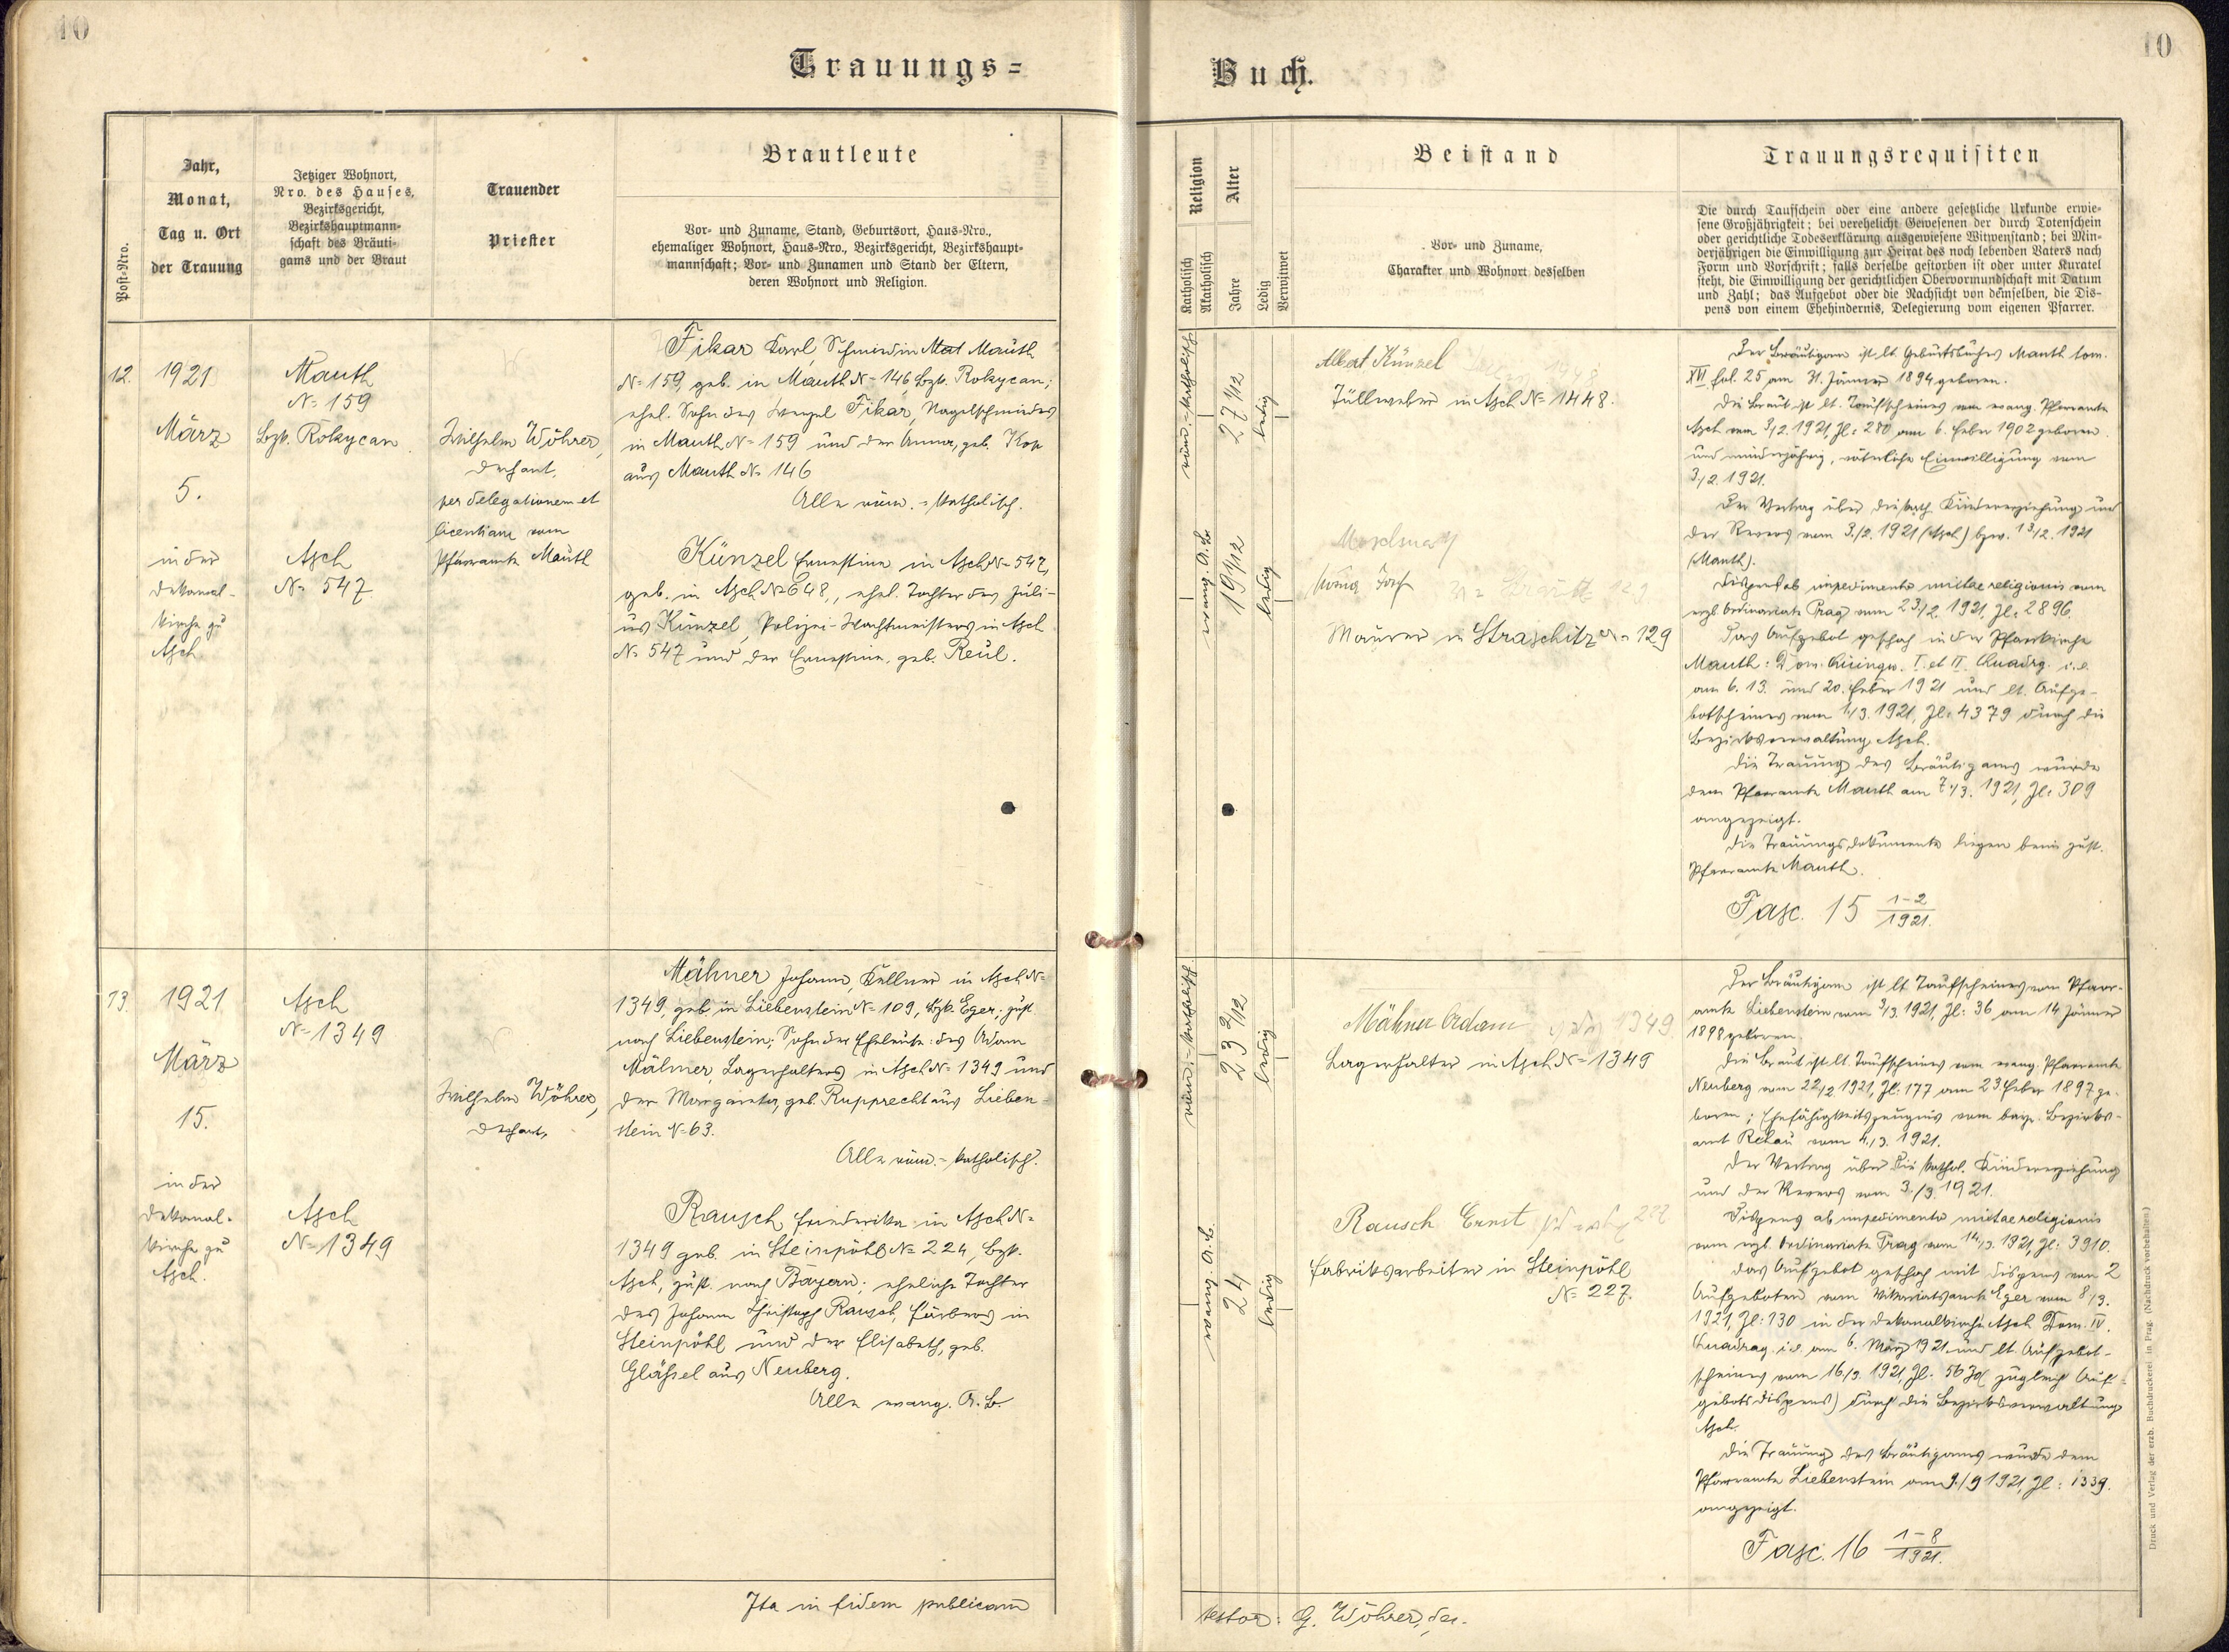 10
10
Trauungs=
Buch.
Post-Nro.
Jahr,
Monat,
Tag u. Ort
der Trauung
Jetziger Wohnort,
Nro. des Hauses,
Bezirksgericht,
Bezirkshauptmann-
schaft des Bräuti-
gams und der Braut
Trauender
Priester
Brautleute
Vor- und Zuname, Stand, Geburtsort, Haus-Nro.,
ehemaliger Wohnort, Haus-Nro., Bezirksgericht, Bezirkshaupt-
mannschaft; Vor- und Zunamen und Stand der Eltern,
deren Wohnort und Religion.
Religion
Katholisch
Akatholisch
Alter
Jahre
Ledig
Verwitwet
Beistand
Vor- und Zuname,
Charakter und Wohnort desselben
Trauungsrequisiten
Die durch Taufschein oder eine andere gesetzliche Urkunde erwie-
sene Großjährigkeit; bei verehelicht Gewesenen der durch Totenschein
oder gerichtliche Todeserklärung ausgewiesene Witwenstand; bei Min-
derjährigen die Einwilligung zur Heirat des noch lebenden Vaters nach
Form und Vorschrift; falls derselbe gestorben ist oder unter Kuratel
steht, die Einwilligung der gerichtlichen Obervormundschaft mit Datum
und Zahl; das Aufgebot oder die Nachsicht von demselben, die Dis-
pens von einem Ehehindernis, Delegierung vom eigenen Pfarrer.
12.
1921
März
5.
in der
Dekanal-
kirche zu
Asch
Mauth
N= 159
Bzk. Rokycan
Asch
N= 547
Wilhelm Wöhrer,
Dechant,
per delegationem et
licentiam vom
Pfarramte Mauth
Fikar Karl, Schmied in Mauth
N= 159, geb. in Mauth N= 146 Bzk. Rokycan;
ehel. Sohn des Wenzel Fikar, Nagelschmiedes
in Mauth N= 159 und der Anna, geb. Kop
aus Mauth N= 146
Alle röm.-katholisch.
Künzel Ernestine in Asch N= 547,
geb. in Asch N= 648, ehel. Tochter des Juli-
us Künzel, Polizei-Wachtmeisters in Asch
N= 547 und der Ernestine, geb. Reul.
röm.-katholisch
27 1/12
ledig
evang. A. B.
19 1/12
ledig
Albert Künzel
Tüllweber in Asch N= 1448.
Josef
Maurer in Straschitz N= 129
Der Bräutigam ist lt. Geburtsbuches Mauth tom.
XVI fol. 25 am 31. Jänner 1894 geboren.
Die Braut ist lt. Taufscheines vom evang. Pfarramte
Asch vom 3/2. 1921, Zl: 280 am 6. Feber 1902 geboren
und minderjährig, väterliche Einwilligung vom
3/2. 1921.
Der Vertrag über die kath. Kindererziehung und
der Revers vom 3./2. 1921 (Asch) bzw. 13/2. 1921
(Mauth).
Dispens ab impedimento mixtae religionis vom
erzb. Ordinariate Prag vom 23/2. 1921, Zl: 2896.
Das Aufgebot geschah in der Pfarrkirche
Mauth: Dom. Quinqu. I. et II. Quadrg. i. e.
am 6. 13. und 20. Feber 1921 und lt. Aufge-
botscheines vom 1/3. 1921, Zl: 4379 durch die
Bezirksverwaltung Asch.
Die Trauung des Bräutigams wurde
dem Pfarramte Mauth am 7./3. 1921, Zl: 309
angezeigt.
Die Trauungsdokumente liegen beim zust.
Pfarramte Mauth.
Fasc. 15 1-2/1921.
13.
1921
März
15.
in der
Dekanal-
kirche zu
Asch.
Asch
N= 1349
Asch
N= 1349
Wilhelm Wöhrer,
Dechant,
Mähner Johann, Kellner in Asch N=
1349, geb. in Liebenstein N= 109, Bzk. Eger; zust.
nach Liebenstein; Sohn der Eheleute: des Adam
Mähner, Lagerhalters in Asch N= 1349 und
der Margareta, geb. Rupprecht aus Lieben-
stein N= 63.
Alle röm.-katholisch.
Rausch Friederike in Asch N=
1349 geb. in Steinpöhl N= 224, Bzk.
Asch, zust. nach Bayern; eheliche Tochter
des Johann Christoph Rausch, Färbers in
Steinpöhl und der Elisabeth, geb.
Gläßel aus Neuberg.
Alle evang. A. B.
röm.-katholisch
23 2/12
ledig
evang. A. B.
24
ledig
Mähner Adam 1349
Lagerhalter in Asch N= 1349
Rausch Ernst
Fabriksarbeiter in Steinpöhl
N= 227.
Der Bräutigam ist lt Taufscheines vom Pfarr-
amte Liebenstein vom 3/3. 1921, Zl: 36 am 14 Jänner
1898 geboren.
Die Braut ist lt. Taufscheines vom evang. Pfarramte
Neuberg vom 22/2. 1921, Zl: 177 am 23. Feber 1897 ge-
boren; Ehefähigkeitszeugnis vom bayr. Bezirks-
amt Rehau vom 4./3. 1921.
Der Vertrag über die kathol. Kindererziehung
und der Revers vom 3./3. 1921.
Dispens ab impedimento mixtae religionis
vom erzb. Ordinariate Prag vom 14/3. 1921, Zl: 3910.
Das Aufgebot geschah mit Dispens von 2
Aufgeboten vom Vikariatsamte Eger vom 8/3.
1921, Zl: 130 in der Dekanalkirche Asch Dom. IV.
Quadrag. i. e. am 6. März 1921 und lt. Aufgebot-
scheines vom 16/3. 1921, Zl. zugleich Auf-
gebotsdispens) durch die Bezirksverwaltung
Asch.
Die Trauung des Bräutigams wurde dem
Pfarramte Liebenstein am 9./9 1921, Zl: 1339.
angezeigt.
Fasc. 16 1-8/1921.
Ita in fidem publicam
testor: G. Wöhrer, dec.
Druck und Verlag der erzb. Buchdruckerei in Prag. (Nachdruck vorbehalten.)